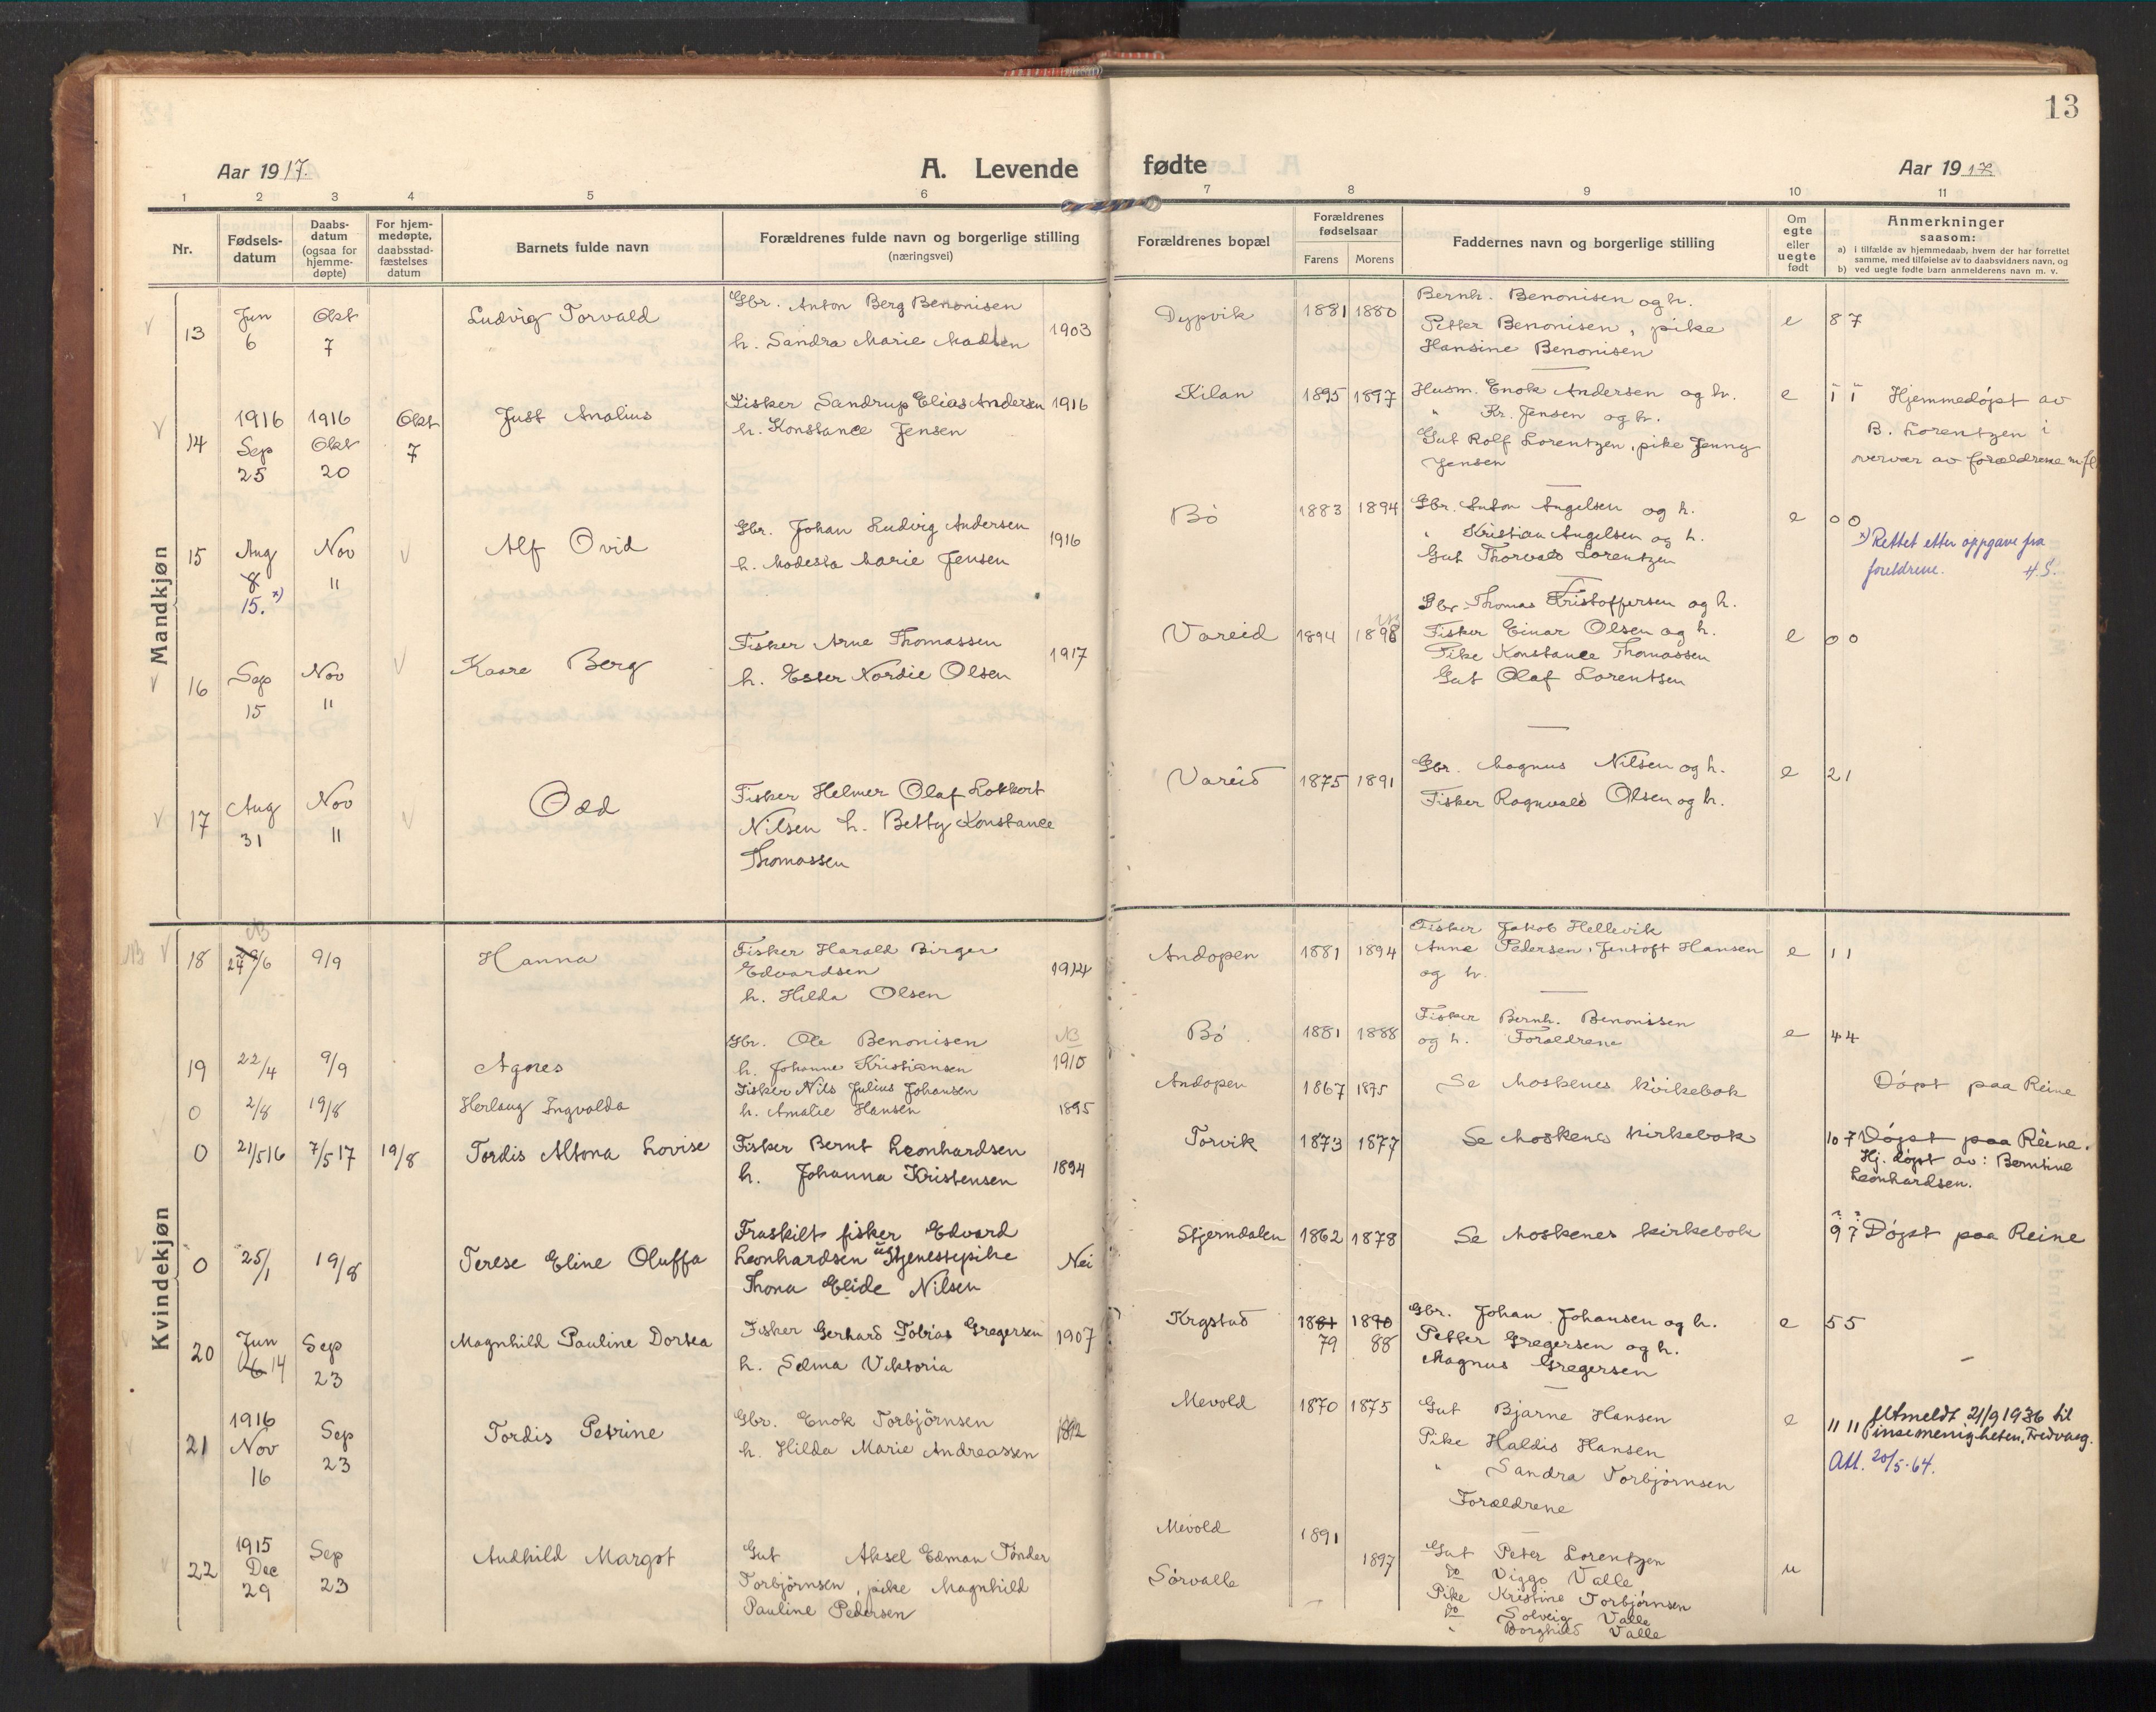 13
Aar 1917.
A. Levende
fødte
Aar 1917.
1 2 3 4 5 6 7 8 9 10 11
Nr.
Fødsels-
datum
Daabs-
datum
(ogsaa for
hjemme-
døpte)
For hjem-
medøpte,
daabsstad-
fæstelses
datum
Barnets fulde navn
Forældrenes fulde navn og borgerlige stilling
(næringsvei)
Forældrenes bopæl
Forældrenes
fødselsaar
Farens Morens
Faddernes navn og borgerlige stilling
Om
egte
eller
uegte
født
Anmerkninger
saasom:
a) i tilfælde av hjemmedaab, hvem der har forrettet
samme, med tilføielse av to daabsvidners navn, og
b) ved uegte fødte barn anmelderens navn m. v.
Mandkjøn
13
Jun
6
Okt
7
Ludvig Torvald
Gbr. Anton Berg Benonisen
h. Sandra Marie Madsen
1903
Dypvik
1881 1880
Bernh. Benonisen og h.
Petter Benonisen, pike
Hansine Benonisen
e
8 7
14
1916
Sep
25
1916
Okt
20
Okt
7
Just Analius
Fisker Sandrup Elias Andersen 1916
h. Konstance Jensen
Kilan
1895 1897
Husm. Enok Andersen og h.
" Kr. Jensen og h.
Gut Rolf Lorentzen, pike Jenny
Jensen
e
1 1 Hjemmedøpt av
B. Lorentzen i
nervær av forældrene m. fl.
15
Aug
8
15. x)
Nov
11
Alf Ovid
Gbr. Johan Ludvig Andersen
h. Modesta Marie Jensen
1916
Bø
1883 1894
Gbr. Anton Angelsen og h.
" Kristian Angelsen og h.
Gut Thorvald Lorentzen
e
0 0
x) Rettet etter oppgave fra
foreldrene. H.S.
16
Sep
15
Nov
11
Kaare Berg
Fisker Arne Thomassen
h. Ester Nordie Olsen
1917
Vareid
1894 1898
Gbr. Thomas Kristoffersen og h.
Fisker Einar Olsen og h.
Pike Konstance Thomassen
Gut Olaf Lorentsen
e
0 0
17
Aug
31
Nov
11
Odd
Fisker Helmer Olaf Lokkert
Nilsen h. Betty Konstance
Thomassen
Vareid
1875 1891
Gbr. Magnus Nilsen og h.
Fisker Ragnvald Olsen og h.
e
2 1
Kvindekjøn
NB
18
24/6
NB
9/9
Hanna
Fisker Harald Birger
Edvardsen
h. Hilda Olsen
1914
Andopen
1881 1894
Fisker Jakob Hellevik
Anna Pedersen, Jentoft Hansen
og h.
e
1 1
19
22/4
9/9
Agnes
Gbr. Ole Benonisen
h. Johanne Kristiansen
NB
1910
Bø
1881 1888
Fisker Bernh. Benonisen
og h. Forældrene
e
4 4
0
2/8
19/8
Herlaug Ingvalda
Fisker Nils Julius Johansen
h. Amalie Hansen
1895
Andopen
1867 1875
Se Moskenes kirkebok
Døpt paa Reine
0
21/5 16
7/5 17
19/8
Tordis Altona Lovise
Fisker Bernt Leonhardsen
h. Johanna Kristensen
1894
Torvik
1873 1877
Se Moskenes kirkebok
10 7 Døpt paa Reine.
Hj. døpt av: Berntine
Leonhardsen.
0
25/1
19/8
Terese Eline Oluffa
Fraskilt fisker Edvard
Leonhardsen ug tjenestepike
Thona Elide Nilsen
Nei
Stjerndalen
1862 1878
Se Moskenes kirkebok
9 7 Døpt paa Reine
20
Jun
14
Sep
23
Magnhild Pauline Dortea
Fisker Gerhard Tobias Gregersen
h. Selma Viktoria
1907
Krystad
1881 1890
79 88
Gbr. Johan Johansen og h.
Petter Gregersen og h.
Magnus Gregersen
e
5 5
21
1916
Nov
16
Sep
23
Tordis Petrine
Gbr. Enok Torbjörnsen
h. Hilda Marie Andreassen
Mevold
1870 1875
Gut Bjarne Hansen
Pike Haldis Hansen
" Sandra Torbjørnsen
Forældrene
e
11 11 Utmeldt 21/9 1936 til
Pinsemenigheten, Fredvang.
Att. 20/5-64.
22
1915
Dec
29
Sep
23
Audhild Margot
Gut Aksel Edman Tønder
Torbjörnsen, pike Magnhild
Pauline Pedersen
Mevold
Sørvalle
1891
1897
Gut Peter Lorentzen
do Viggo Valle
Pike Kristine Torbjørnsen
do Solveig Valle
" Borghild Valle
u